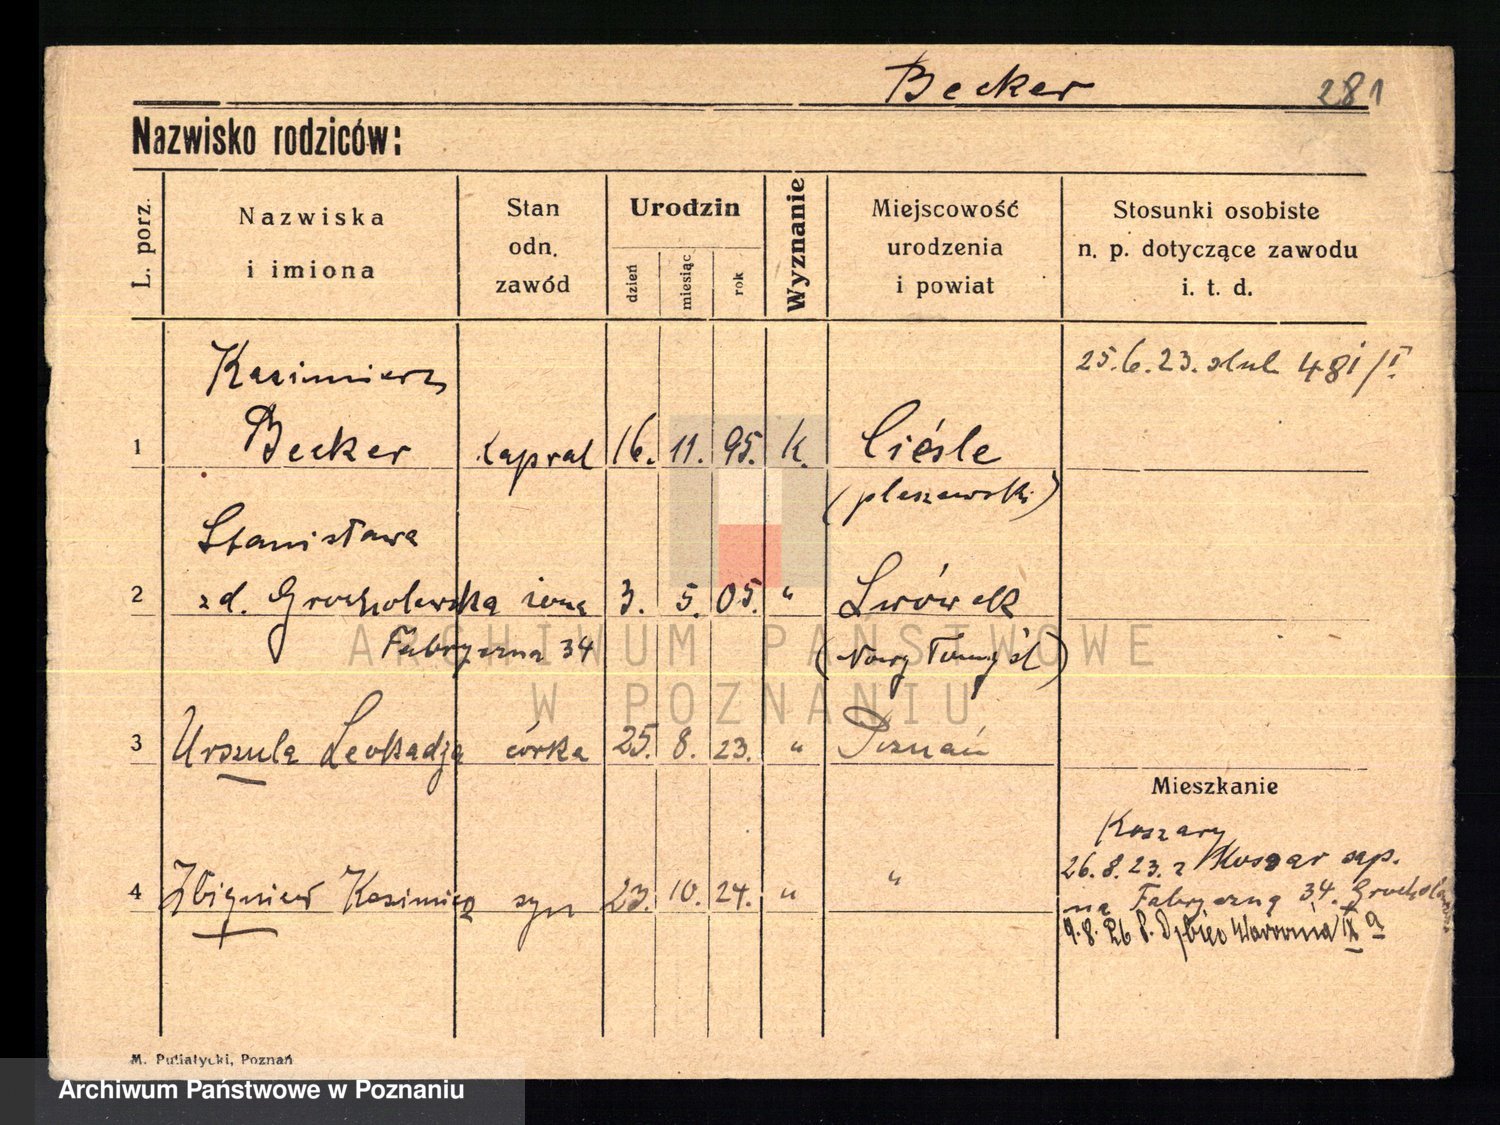 Becker
281
Nazwisko rodziców:
L. porz.
Nazwiska
i imiona
Stan
odn.
zawód
Urodzin
dzień
miesiąc
rok
Wyznanie
Miejscowość
urodzenia
i powiat
Stosunki osobiste
n. p. dotyczące zawodu
i. t. d.
25.6.23. slub 481/I.
Kazimierz
1 Becker kapral 16. 11. 95. k. Cieśle
(pleszewski)
Stanisława
2 zd. Grocholewska żona 3. 5. 05. " Lwówek
Fabryczna 34 (Nowy Tomyśl)
ARCHIWUM PAŃSTWOWE
W POZNANIU
3 Urszula Leokadja córka 25. 8. 23. " Poznań
Mieszkanie
Koszary
26.8.23. z Koszar sap.
4 Zbigniew Kazimierz syn 23. 10. 24. " "
na Fabryczną 34.
9.8.26 Dębiec
M. Putiatycki, Poznań
Archiwum Państwowe w Poznaniu